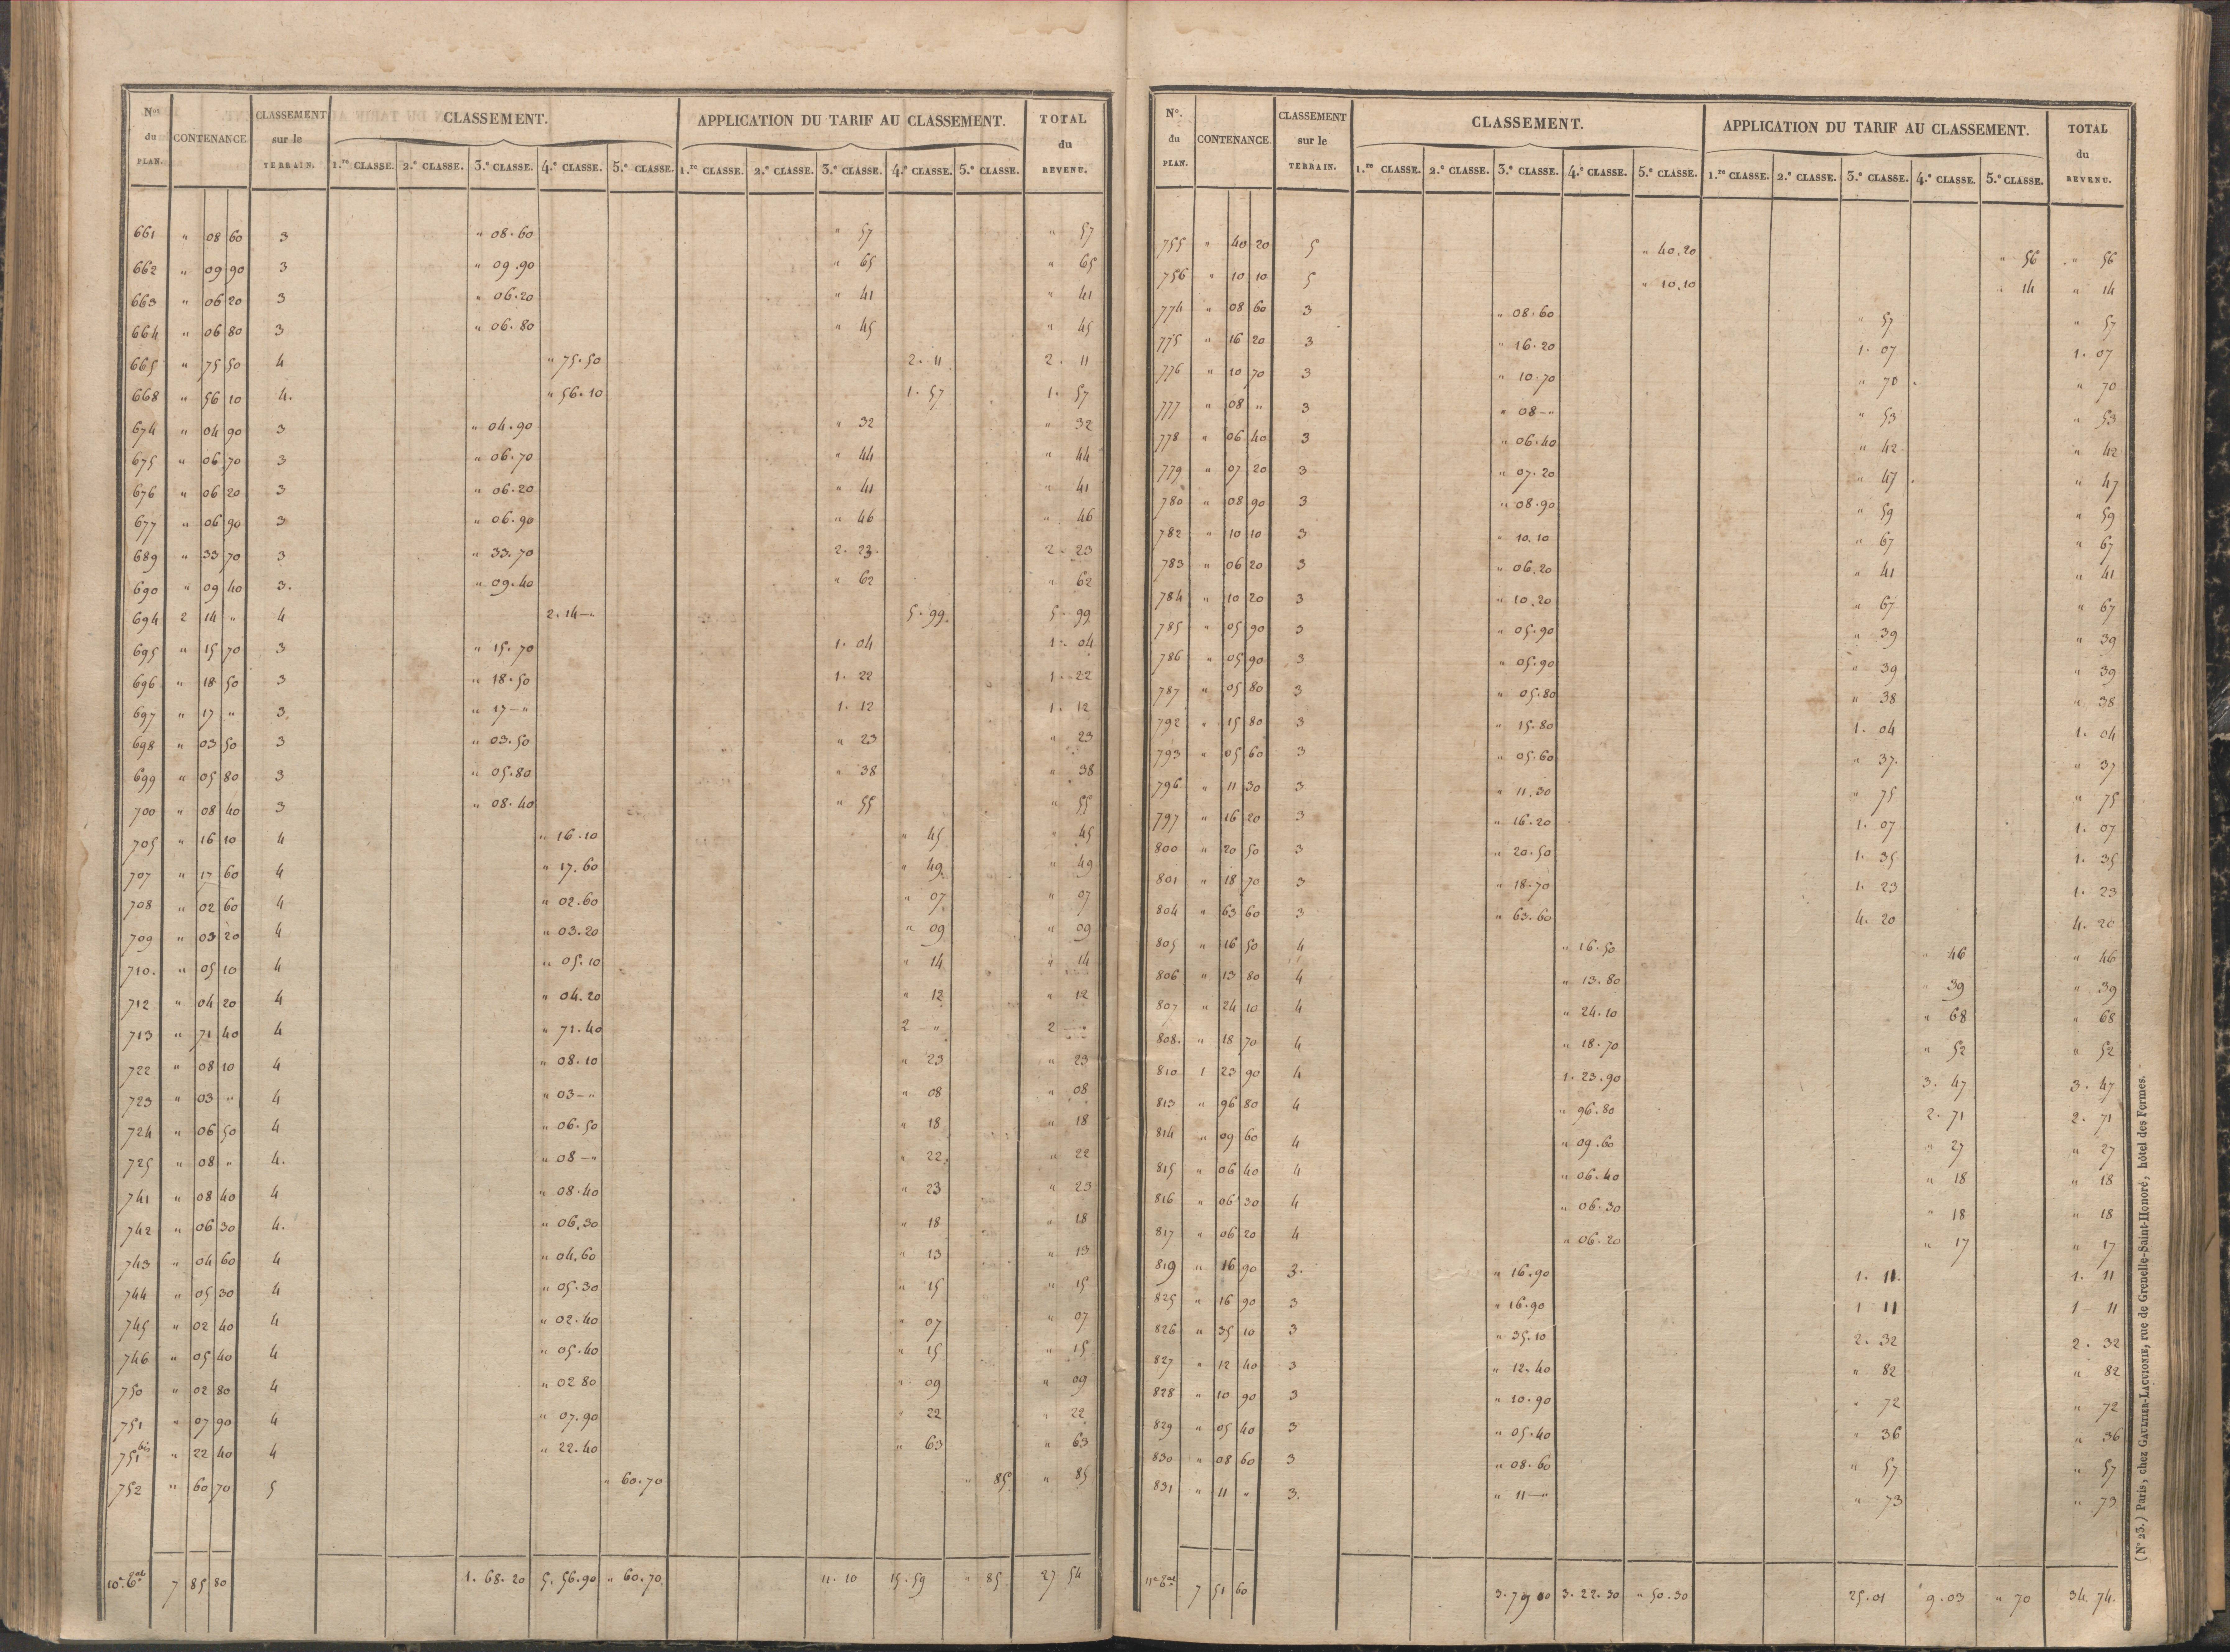 N.os du PLAN. | CONTENANCE. | CLASSEMENT sur le TERRAIN. | CLASSEMENT. | APPLICATION DU TARIF AU CLASSEMENT. | TOTAL du REVENU.
1.re CLASSE. 2.e CLASSE. 3.e CLASSE. 4.e CLASSE. 5.e CLASSE. 1.re CLASSE. 2.e CLASSE. 3.e CLASSE. 4.e CLASSE. 5.e CLASSE.
661 " 08 60 3 " 08.60 " 57 " 57
662 " 09 90 3 " 09.90 " 65 " 65
663 " 06 20 3 " 06.20 " 41 " 41
664 " 06 80 3 " 06.80 " 45 " 45
665 " 75 50 4 " 75.50 2. 11 2. 11
668 " 56 10 4. " 56.10 1. 57 1. 57
674 " 04 90 3 " 04.90 " 32 " 32
675 " 06 70 3 " 06.70 " 44 " 44
676 " 06 20 3 " 06.20 " 41 " 41
677 " 06 90 3 " 06.90 " 46 " 46
689 " 33 70 3 " 33.70 2. 23 2. 23
690 " 09 40 3. " 09.40 " 62 " 62
694 2 14 " 4 2.14 — " 5. 99 5. 99
695 " 15 70 3 " 15.70 1. 04 1. 04
696 " 18 50 3 " 18.50 1. 22 1. 22
697 " 17 " 3. " 17 — " 1. 12 1. 12
698 " 03 50 3 " 03.50 " 23 " 23
699 " 05 80 3 " 05.80 " 38 " 38
700 " 08 40 3 " 08.40 " 55 " 55
705 " 16 10 4 " 16.10 " 45 " 45
707 " 17 60 4 " 17.60 " 49 " 49
708 " 02 60 4 " 02.60 " 07 " 07
709 " 03 20 4 " 03.20 " 09 " 09
710. " 05 10 4 " 05.10 " 14 " 14
712 " 04 20 4 " 04.20 " 12 " 12
713 " 71 40 4 " 71.40 2 — " 2 — "
722 " 08 10 4 " 08.10 " 23 " 23
723 " 03 " 4 " 03 — " " 08 " 08
724 " 06 50 4 " 06.50 " 18 " 18
725 " 08 " 4. " 08 — " " 22 " 22
741 " 08 40 4 " 08.40 " 23 " 23
742 " 06 30 4. " 06.30 " 18 " 18
743 " 04 60 4 " 04.60 " 13 " 13
744 " 05 30 4 " 05.30 " 15 " 15
745 " 02 40 4 " 02.40 " 07 " 07
746 " 05 40 4 " 05.40 " 15 " 15
750 " 02 80 4 " 02 80 " 09 " 09
751 " 07 90 4 " 07.90 " 22 " 22
751 bis " 22 40 4 " 22.40 " 63 " 63
752 " 60 70 5 " 60.70 " 85 " 85
7 85 80 1. 68. 20 5. 56.90 " 60.70 11. 10 15.59 " 85 27 54
N.o du PLAN. | CONTENANCE. | CLASSEMENT sur le TERRAIN. | CLASSEMENT. | APPLICATION DU TARIF AU CLASSEMENT. | TOTAL du REVENU.
1.re CLASSE. 2.e CLASSE. 3.e CLASSE. 4.e CLASSE. 5.e CLASSE. 1.re CLASSE. 2.e CLASSE. 3.e CLASSE. 4.e CLASSE. 5.e CLASSE.
755 " 40 20 5 " 40.20 " 56 " 56
756 " 10 10 5 " 10.10 " 14 " 14
774 " 08 60 3 " 08.60 " 57 " 57
775 " 16 20 3 " 16.20 1. 07 1. 07
776 " 10 70 3 " 10.70 " 70 " 70
777 " 08 " 3 " 08 — " " 53 " 53
778 " 06 40 3 " 06.40 " 42 " 42
779 " 07 20 3 " 07.20 " 47 " 47
780 " 08 90 3 " 08.90 " 59 " 59
782 " 10 10 3 " 10.10 " 67 " 67
783 " 06 20 3 " 06.20 " 41 " 41
784 " 10 20 3 " 10.20 " 67 " 67
785 " 05 90 3 " 05.90 " 39 " 39
786 " 05 90 3 " 05.90 " 39 " 39
787 " 05 80 3 " 05.80 " 38 " 38
792 " 15 80 3 " 15.80 1. 04 1. 04
793 " 05 60 3 " 05.60 " 37 " 37
796 " 11 30 3 " 11.30 " 75 " 75
797 " 16 20 3 " 16.20 1. 07 1. 07
800 " 20 50 3 " 20.50 1. 35 1. 35
801 " 18 70 3 " 18.70 1. 23 1. 23
804 " 63 60 3 " 63.60 4. 20 4. 20
805 " 16 50 4 " 16.50 " 46 " 46
806 " 13 80 4 " 13.80 " 39 " 39
807 " 24 10 4 " 24.10 " 68 " 68
808. " 18 70 4 " 18.70 " 52 " 52
810 1 23 90 4 1.23.90 3. 47 3. 47
813 " 96 80 4 " 96.80 2. 71 2. 71
814 " 09 60 4 " 09.60 " 27 " 27
815 " 06 40 4 " 06.40 " 18 " 18
816 " 06 30 4 " 06.30 " 18 " 18
817 " 06 20 4 " 06.20 " 17 " 17
819 " 16 90 3. " 16.90 1. 11 1. 11
825 " 16 90 3 " 16.90 1 11 1 11
826 " 35 10 3 " 35.10 2. 32 2. 32
827 " 12 40 3 " 12.40 " 82 " 82
828 " 10 90 3 " 10.90 " 72 " 72
829 " 05 40 3 " 05.40 " 36 " 36
830 " 08 60 3 " 08.60 " 57 " 57
831 " 11 " 3. " 11 — " " 73 " 73
7 51 60 3.79 00 3.22.30 " 50.30 25.01 9.03 " 70 34.74.
(N° 23.) Paris, chez GAULTIER-LAGUIONIE, rue de Grenelle-Saint-Honoré, hôtel des Fermes.